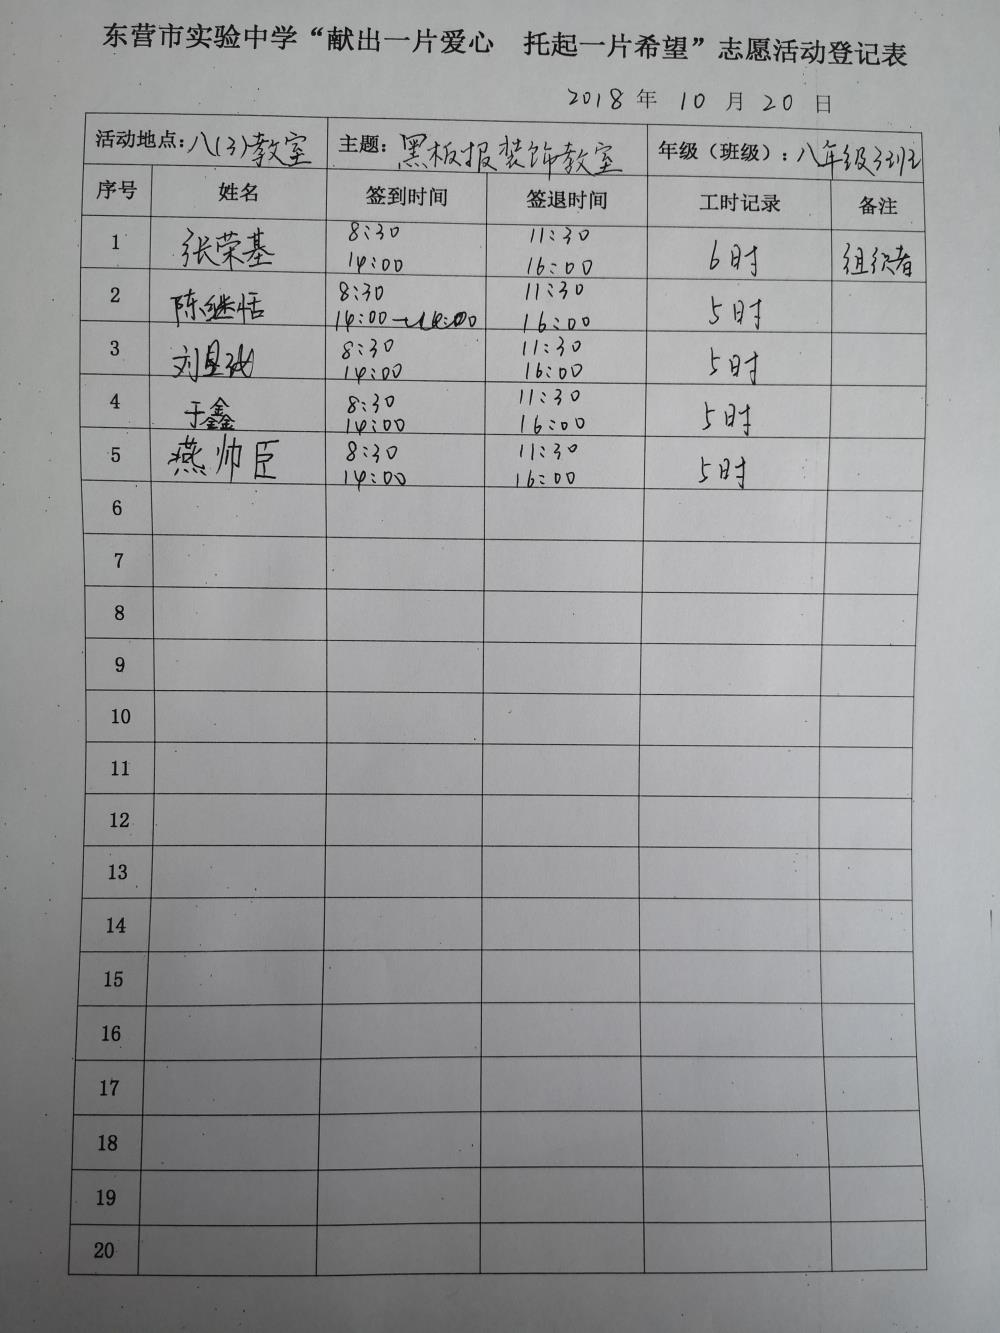 东营市实验中学“献出一片爱心 托起一片希望”志愿活动登记表
2018年10月20日
活动地点：八(3)教室 主题：黑板报装饰教室 年级（班级）：八年级3班
序号 姓名 签到时间 签退时间 工时记录 备注
1 张荣基 8:30 11:30 6时 组织者
14:00 16:00
2 陈继恬 8:30 11:30 5时
14:00 16:00
3 刘 8:30 11:30 5时
14:00 16:00
4 于鑫 8:30 11:30 5时
14:00 16:00
5 燕帅臣 8:30 11:30 5时
14:00 16:00
6
7
8
9
10
11
12
13
14
15
16
17
18
19
20